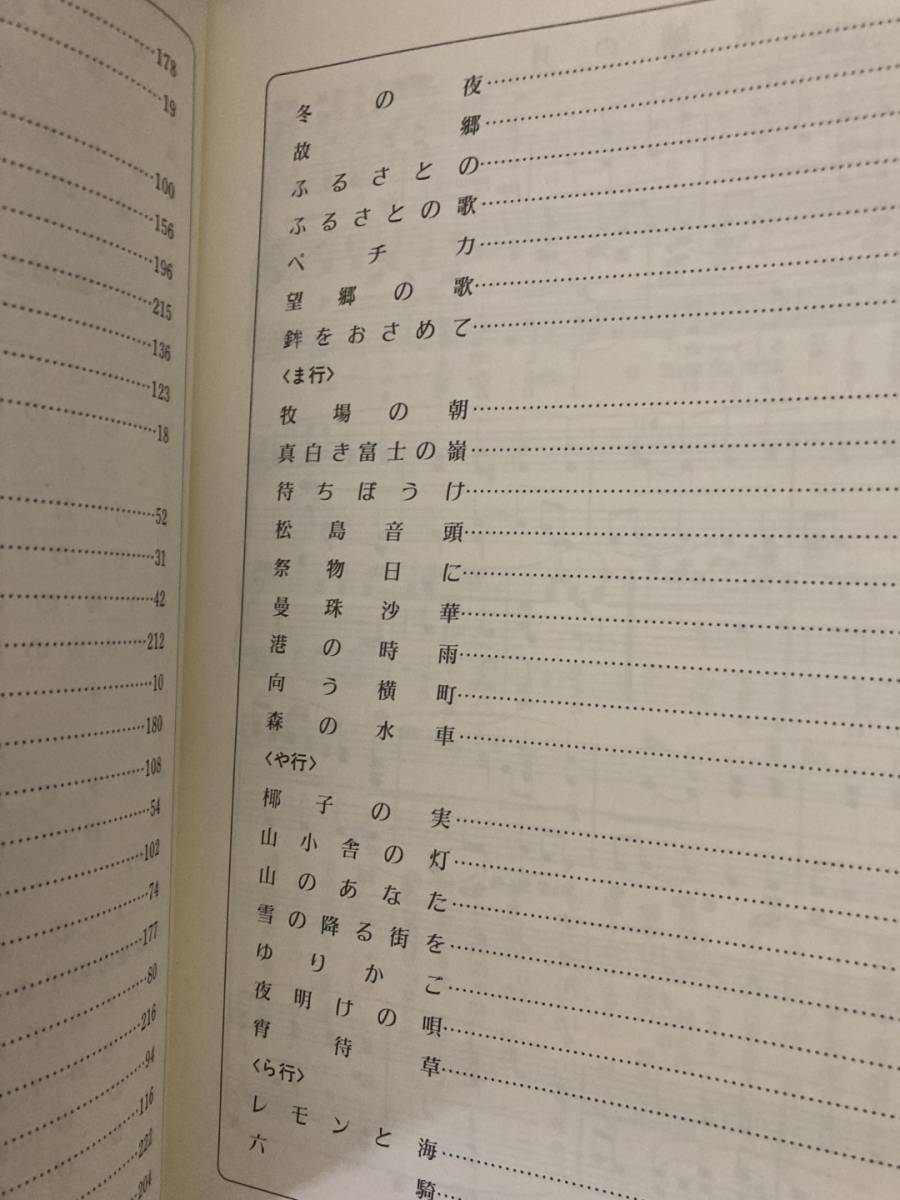 178
19
100
156
196
215
136
123
18
52
31
42
212
10
180
108
54
102
74
177
80
216
94
116
222
204
冬の夜
故郷
ふるさとの
ふるさとの歌
ペチカ
望郷の歌
鉾をおさめて
〈ま行〉
牧場の朝
真白き富士の嶺
待ちぼうけ
松島音頭
祭物日に
曼珠沙華
港の時雨
向う横町
森の水車
〈や行〉
椰子の実
山小舎の灯
山のあなた
雪の降る街を
ゆりかご
夜明けの唄
宵待草
〈ら行〉
レモンと海
六騎